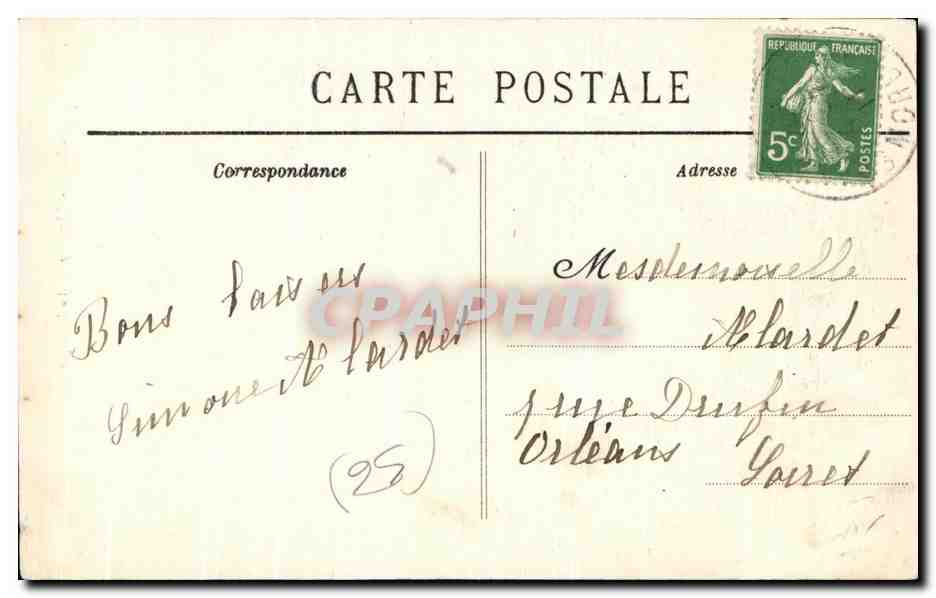 CARTE POSTALE
REPUBLIQUE FRANÇAISE
5c
POSTES
Correspondance
Adresse
Bons baisers
Simone Alardet
(25)
Mesdemoiselle
Alardet
rue
Orléans Loiret
CPAPHIL